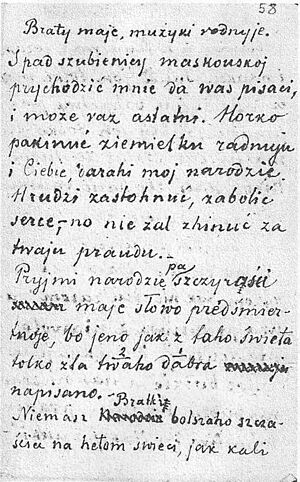 58
Braty maje, mużyki rodnyje.
S pad szubienicy maskouskoj
prychodzić mnie da was pisaci,
i może raz astatni. Horko
pakinuć ziemielku radnuju
i Ciebie, darahi moj narodzie.
Hrudzi zastohnuć, zabolić
serce,– no nie żal zhinuć za
twaju praudu.–
Pryjmi narodzie pa szczyrości
maje słowo predśmier-
tnoje, bo jeno jak z taho świeta
tolko dla twaho dabra
napisano.
Niemasz Bratki bolszaho szcza-
ścia na hetom świeci, jak kali